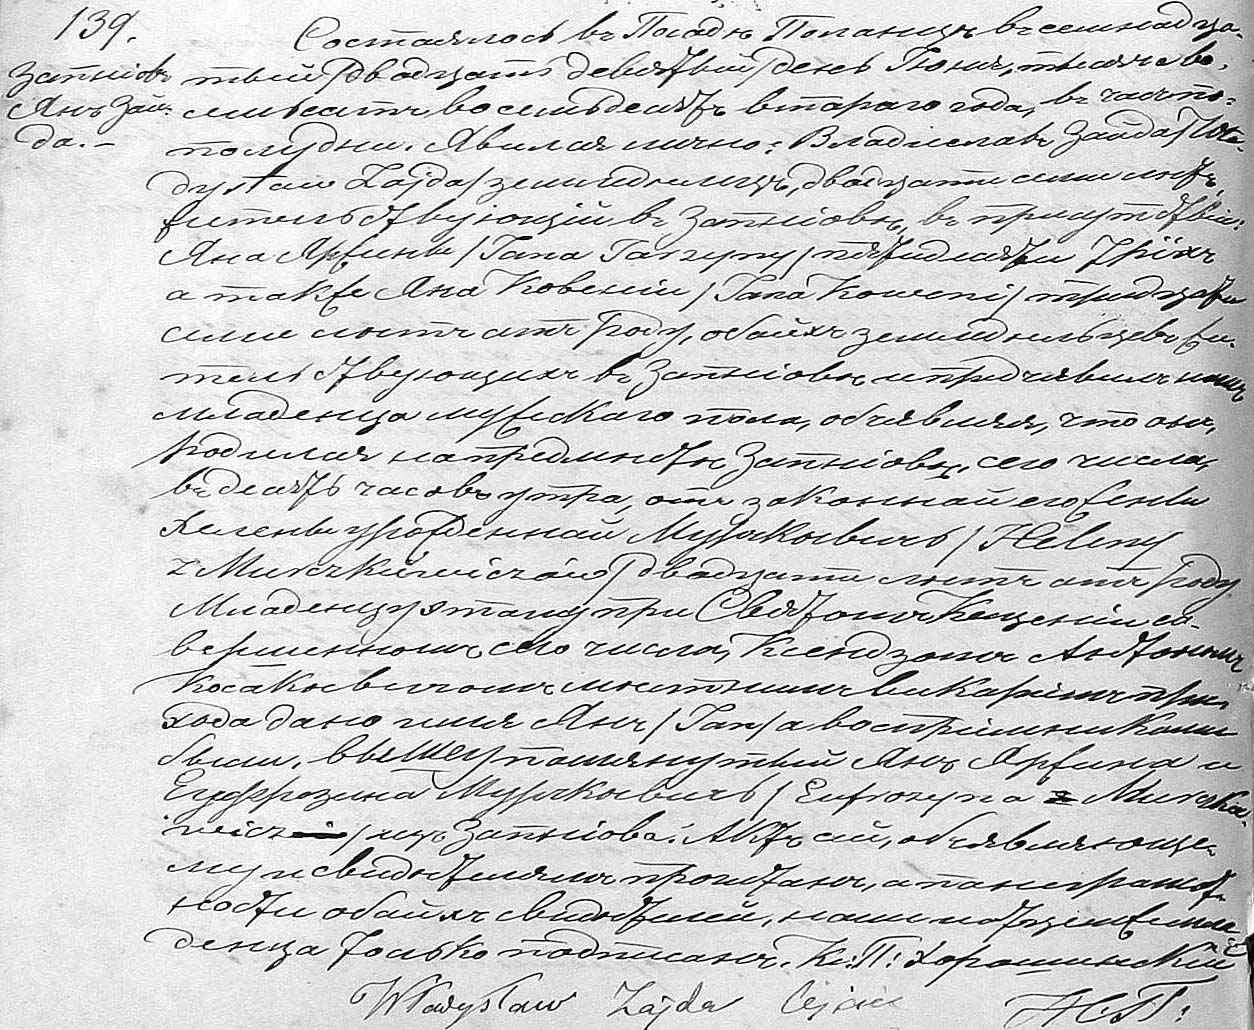 139.
Затніовъ
Янъ Зай-
да. -
Состоялось въ Посадѣ Поланцѣ въ семнадца-
тый /двадцать девятый/ день Іюня, тысяча во-
семьсотъ восемьдесятъ втораго года, въ часъ по-
полудни. Явился лично: Владиславъ Зайда /Wła-
dysław Zajda/ земледѣлецъ, двадцати семи лѣтъ
жительствующій въ Затніовѣ, въ присутствіи:
Яна Яржины /Jana Jarzyny/ пятидесяти трiохъ
а также Яна Ковеніи /Jana Koweni/ тридцати
семи лѣтъ отъ роду, обойхъ земледѣльцевъ жи-
тельствующихъ въ Затніовѣ и предъявилъ намъ
младенца мужскаго пола, объявляя, что онъ
родился на предмѣстѣ Затніовѣ, сего числа,
въ десять часовъ утра, отъ законной его жены
Хелены урожденной Мурчкѣвичъ /Heleny
z Murczkiewiczów/ двадцати лѣтъ отъ роду
Младенцу этому при Святомъ Крещеніи со-
вершенномъ сего числа, Ксендзомъ Антоніемъ
Косакѣвичомъ мѣстнымъ викаріемъ при-
хода дано имя Янъ /Jan/ а воспріемниками
были, вышеупомянутый Янъ Яржина и
Еуфрозина Мурчкѣвичъ /Eufrozyna z Murczkie-
wicz/ изъ Затніова. Актъ сей, объявляюще-
му и свидѣтелямъ прочитанъ, а по неграмот-
ности обойхъ свидѣтелей, нами и отцемъ мла-
денца только подписанъ. Кс: П: Хорошинскій
Władysław Zajda Ojciec Н.П: